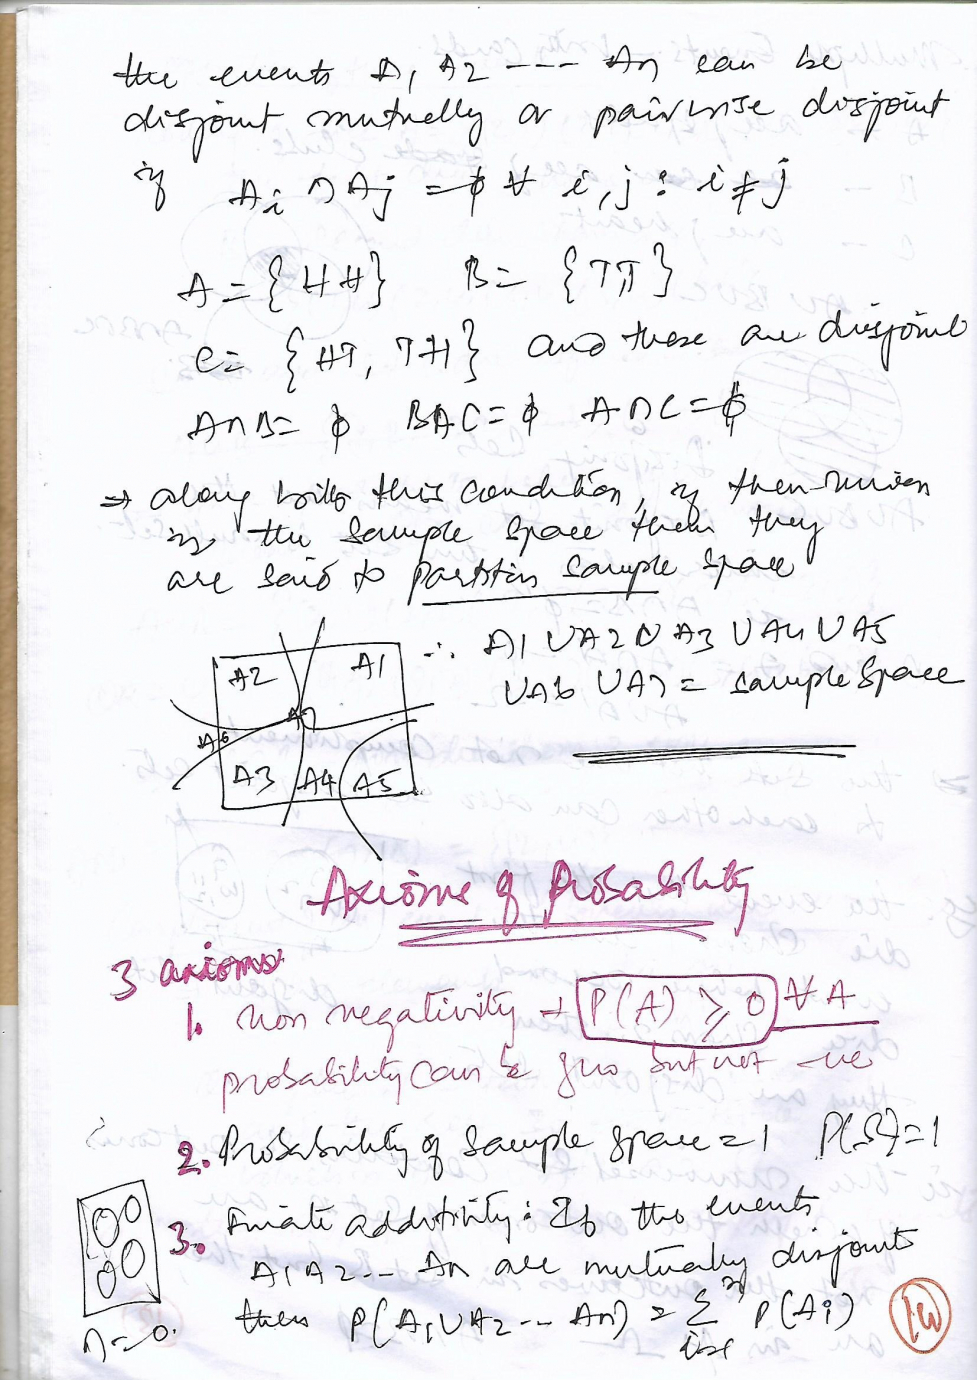 the events A1 A2 ---- An can be
disjoint mutually or pairwise disjoint
if Ai ∩ Aj = ϕ ∀ i, j : i ≠ j
A = {HH} B = {TT}
C = {HT, TH} and these are disjoint
A∩B = ϕ B∩C = ϕ A∩C = ϕ
⇒ along with this condition, if their union
is the sample space then they
are said to partition sample space
A2 A1
A7
A6
A3 A4 A5
∴ A1 UA2 U A3 UA4 UA5
UA6 UA7 = sample space
Axioms of Probability
3 axioms
1. non negativity → P(A) ≥ 0 ∀ A
probability can be zero but not -ve
2. Probability of sample space = 1 P(S) = 1
3. Finite additivity : If the events
A1 A2 -- An are mutually disjoint
then P(A1 U A2 -- An) = n Σ i=1 P(Ai)
∩ = 0.